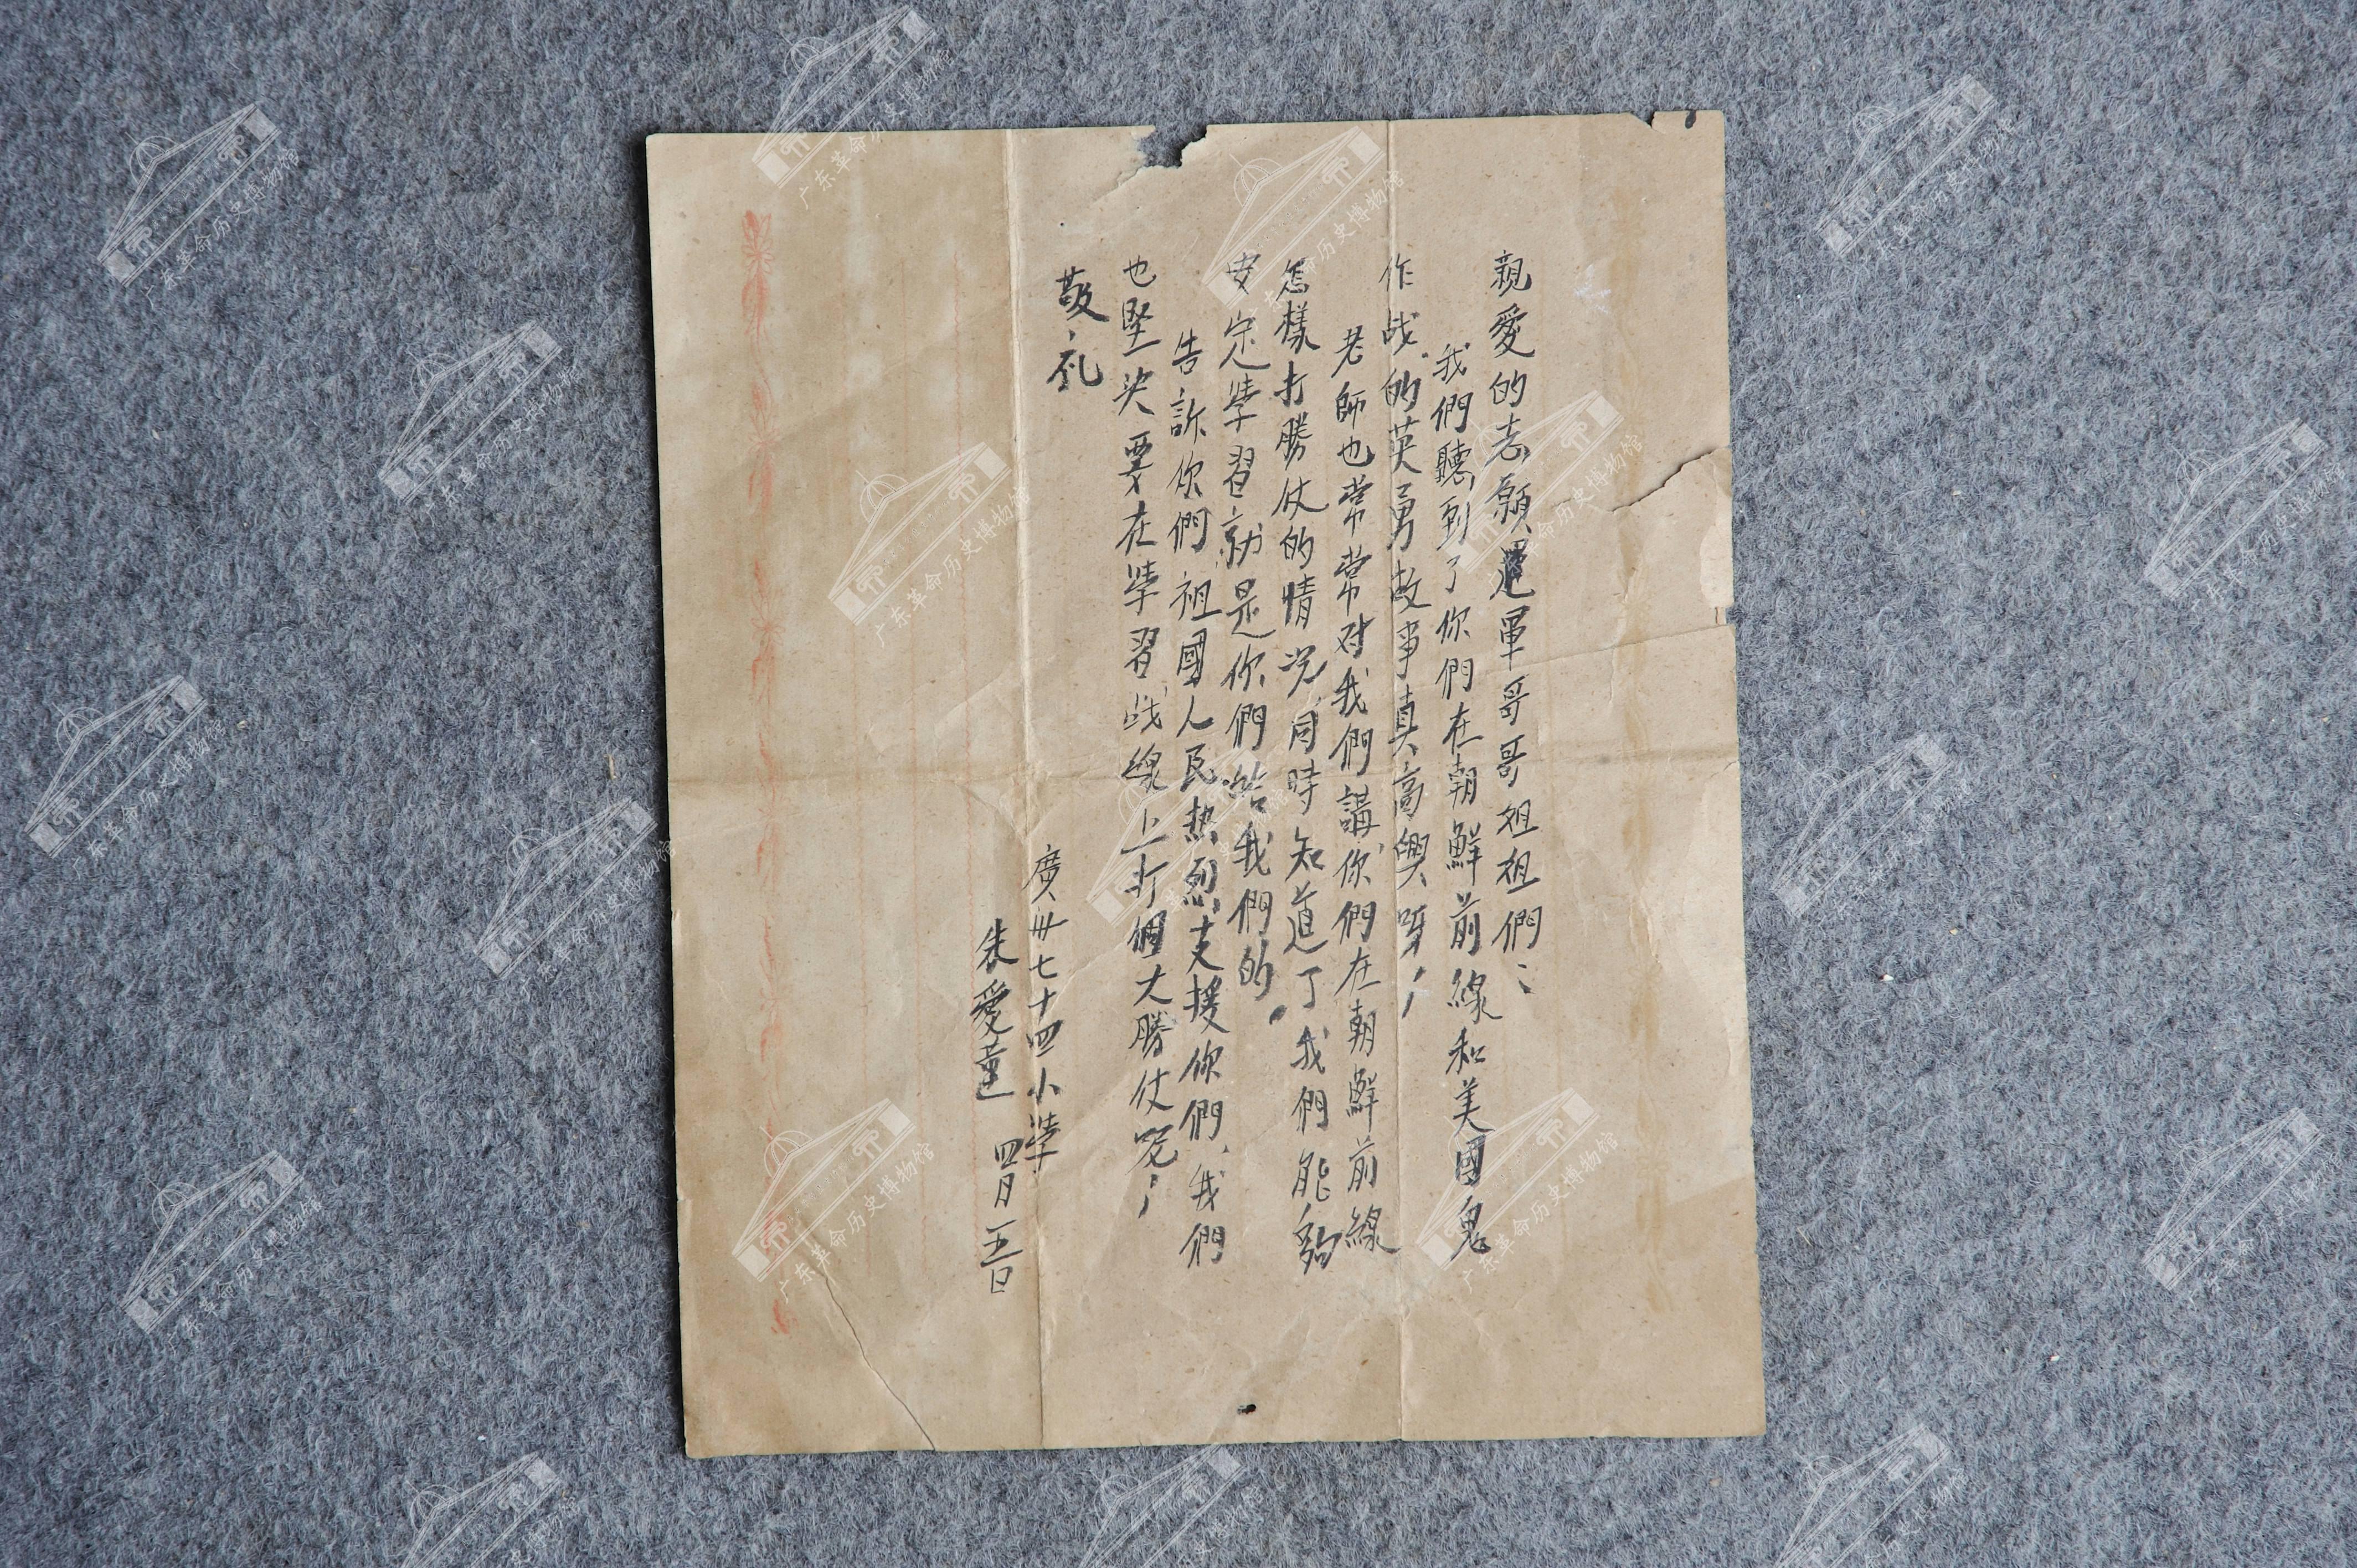 親愛的志願軍哥哥姐姐們：
我們聽到了你們在朝鮮前線和美國鬼
作战的英勇故事真高興呀！
老師也常常对我們講你們在朝鮮前線
怎樣打勝仗的情况，同時知道了我們能夠
安定學習就是你們給我們的。
告訴你們祖國人民热烈支援你們，我們
也坚决要在學習战線上打個大勝仗呢！
敬礼
廣州七十四小學
朱愛蓮 四月五日
广东革命历史博物馆